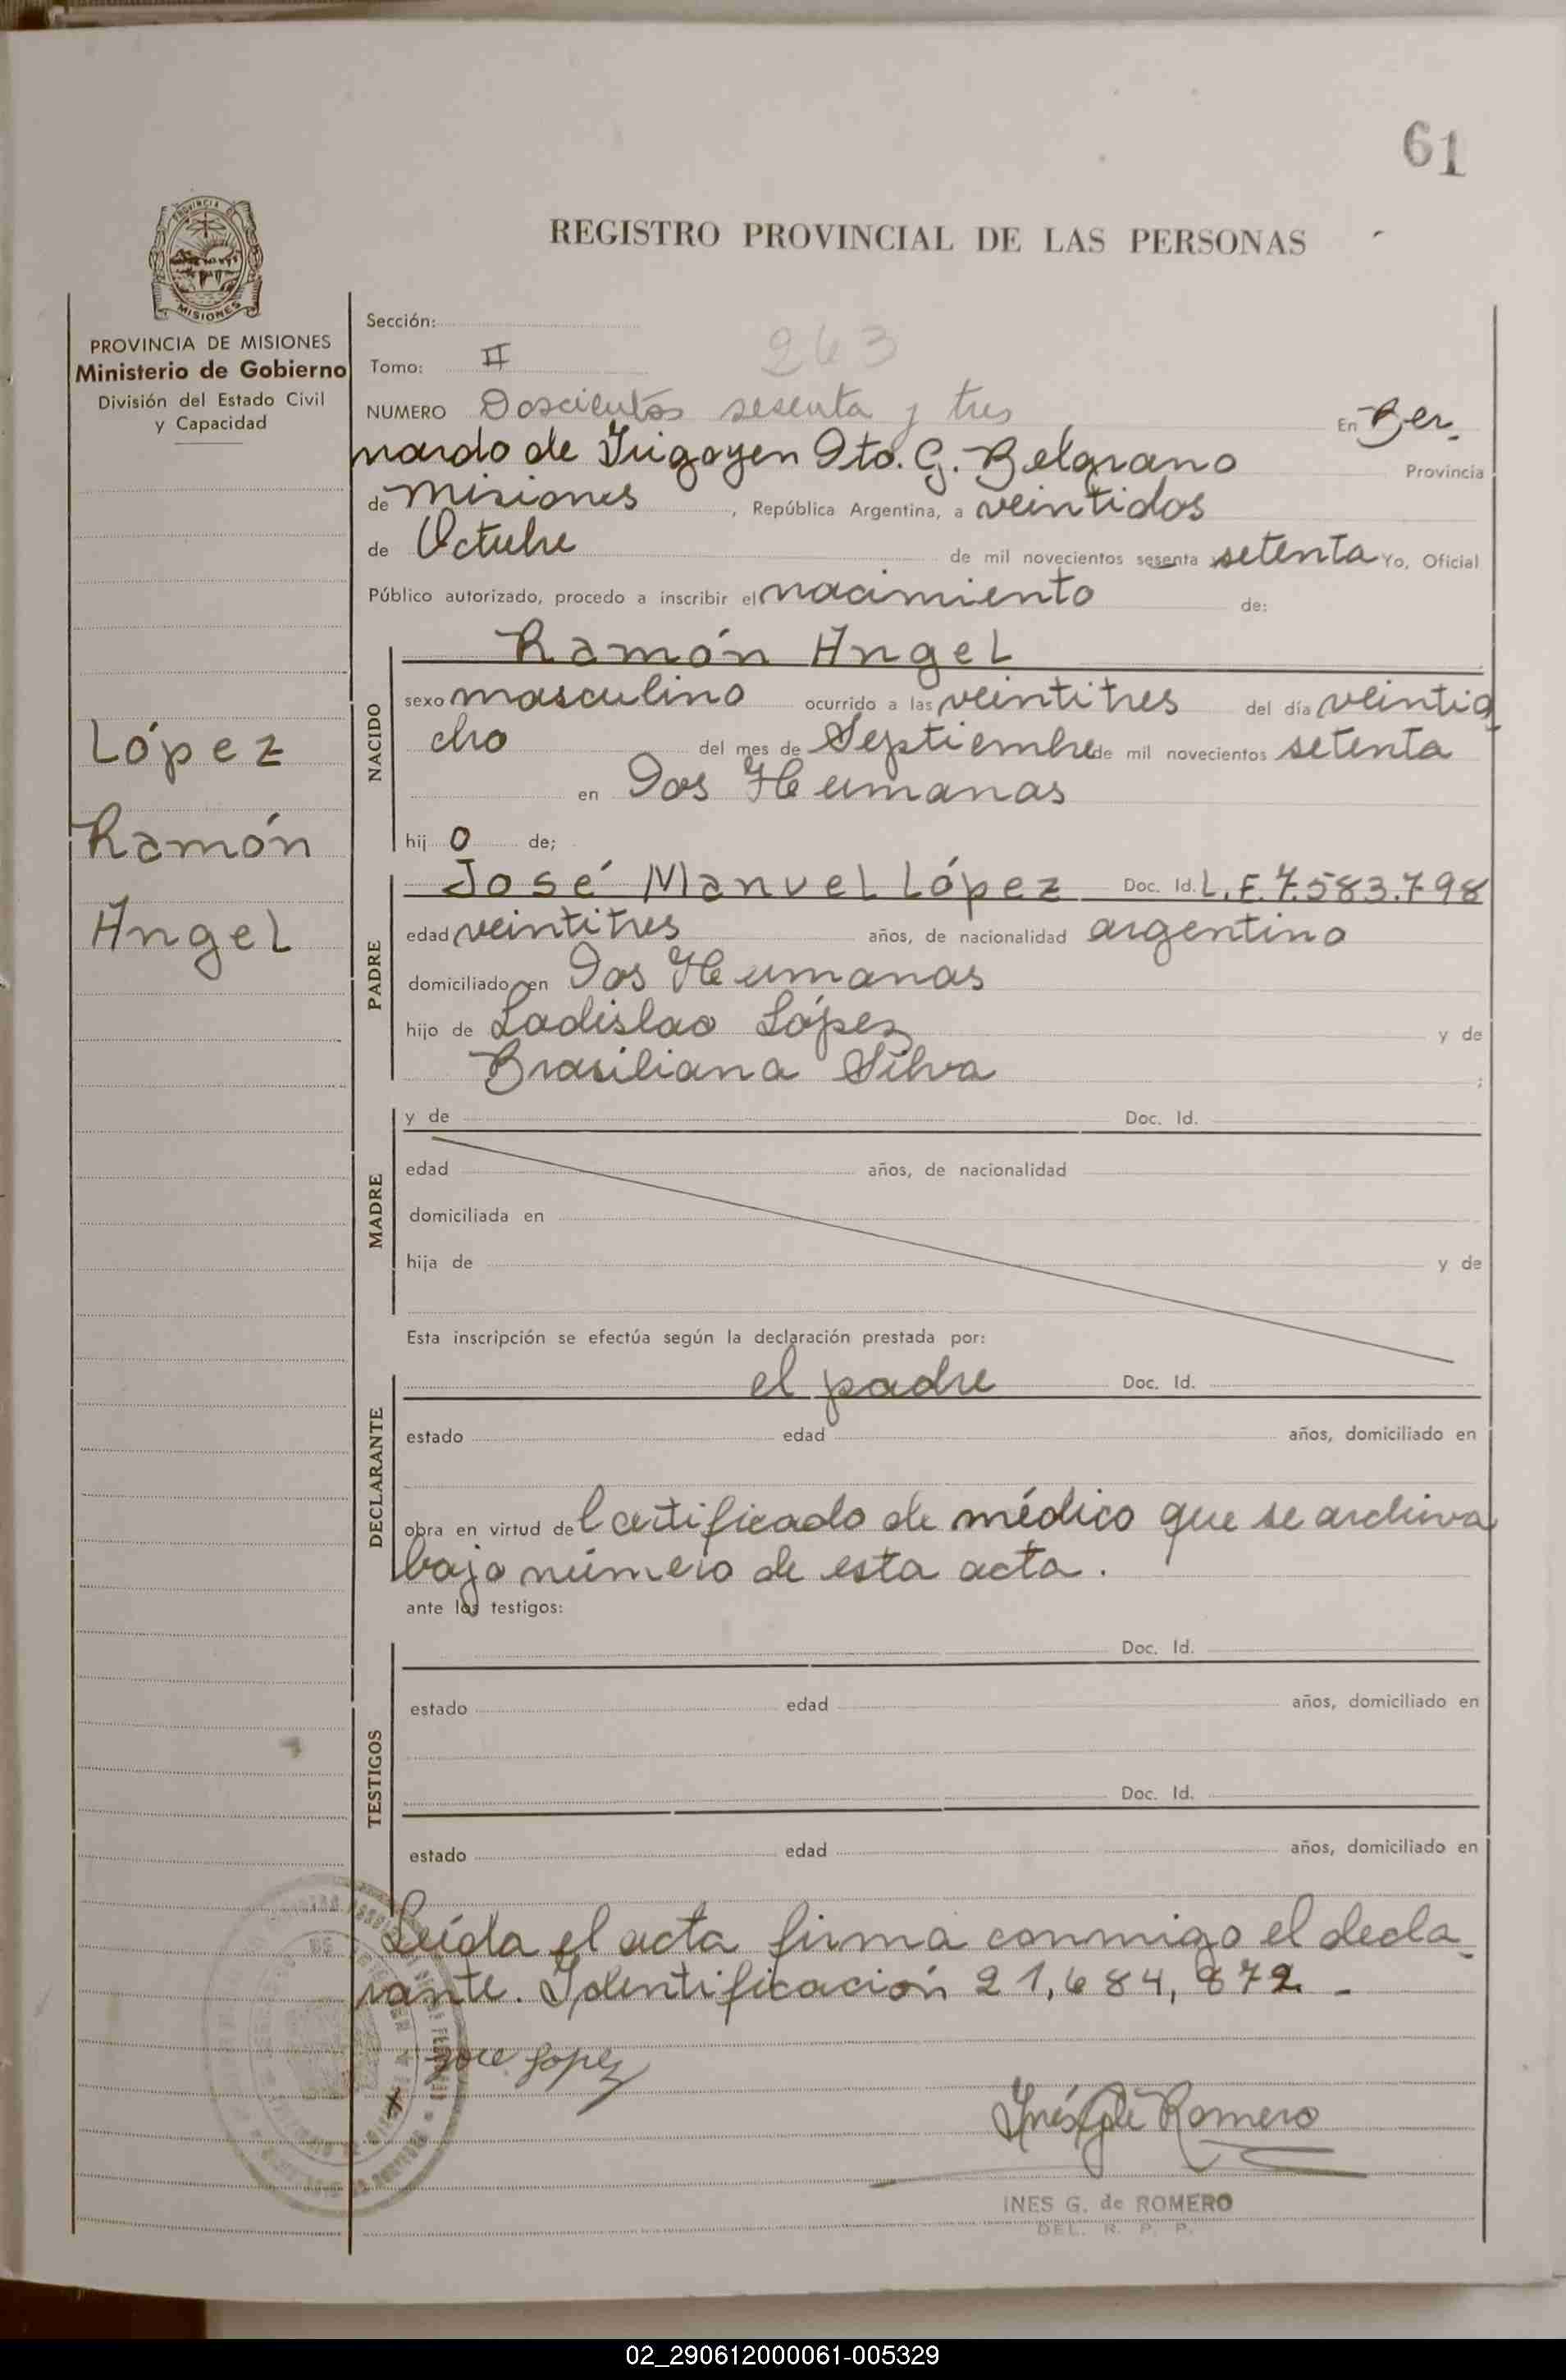 61
REGISTRO PROVINCIAL DE LAS PERSONAS
PROVINCIA DE
MISIONES
PROVINCIA DE MISIONES
Ministerio de Gobierno
División del Estado Civil
y Capacidad
López
Ramón
Angel
Sección:
263
Tomo: II
NUMERO Doscientos sesenta y tres En Ber_
nardo de Irigoyen Dto. G. Belgrano Provincia
de Misiones , República Argentina, a veintidos
de Octubre de mil novecientos sesenta setenta Yo, Oficial
Público autorizado, procedo a inscribir el nacimiento de:
NACIDO
Ramón Angel
sexo masculino ocurrido a las veintitres del día veintio_
cho del mes de Septiembre de mil novecientos setenta
en Dos Hermanas
hij o de;
PADRE
José Manuel López Doc. Id. L.E. 7.583.798
edad veintitres años, de nacionalidad argentino
domiciliado en Dos Hermanas
hijo de Ladislao López y de
Brasiliana Silva ;
MADRE
y de Doc. Id.
edad años, de nacionalidad
domiciliada en
hija de y de
Esta inscripción se efectúa según la declaración prestada por:
DECLARANTE
el padre Doc. Id.
estado edad años, domiciliado en
obra en virtud de l certificado de médico que se archiva
bajo número de esta acta.
ante los testigos:
TESTIGOS
Doc. Id.
estado edad años, domiciliado en
Doc. Id.
estado edad años, domiciliado en
Leída el acta firma conmigo el decla_
rante. Identificación 21,684,872. -
Jose Lopez
Inés G de Romero
INES G. de ROMERO
DEL. R. P. P.
02_290612000061-005329